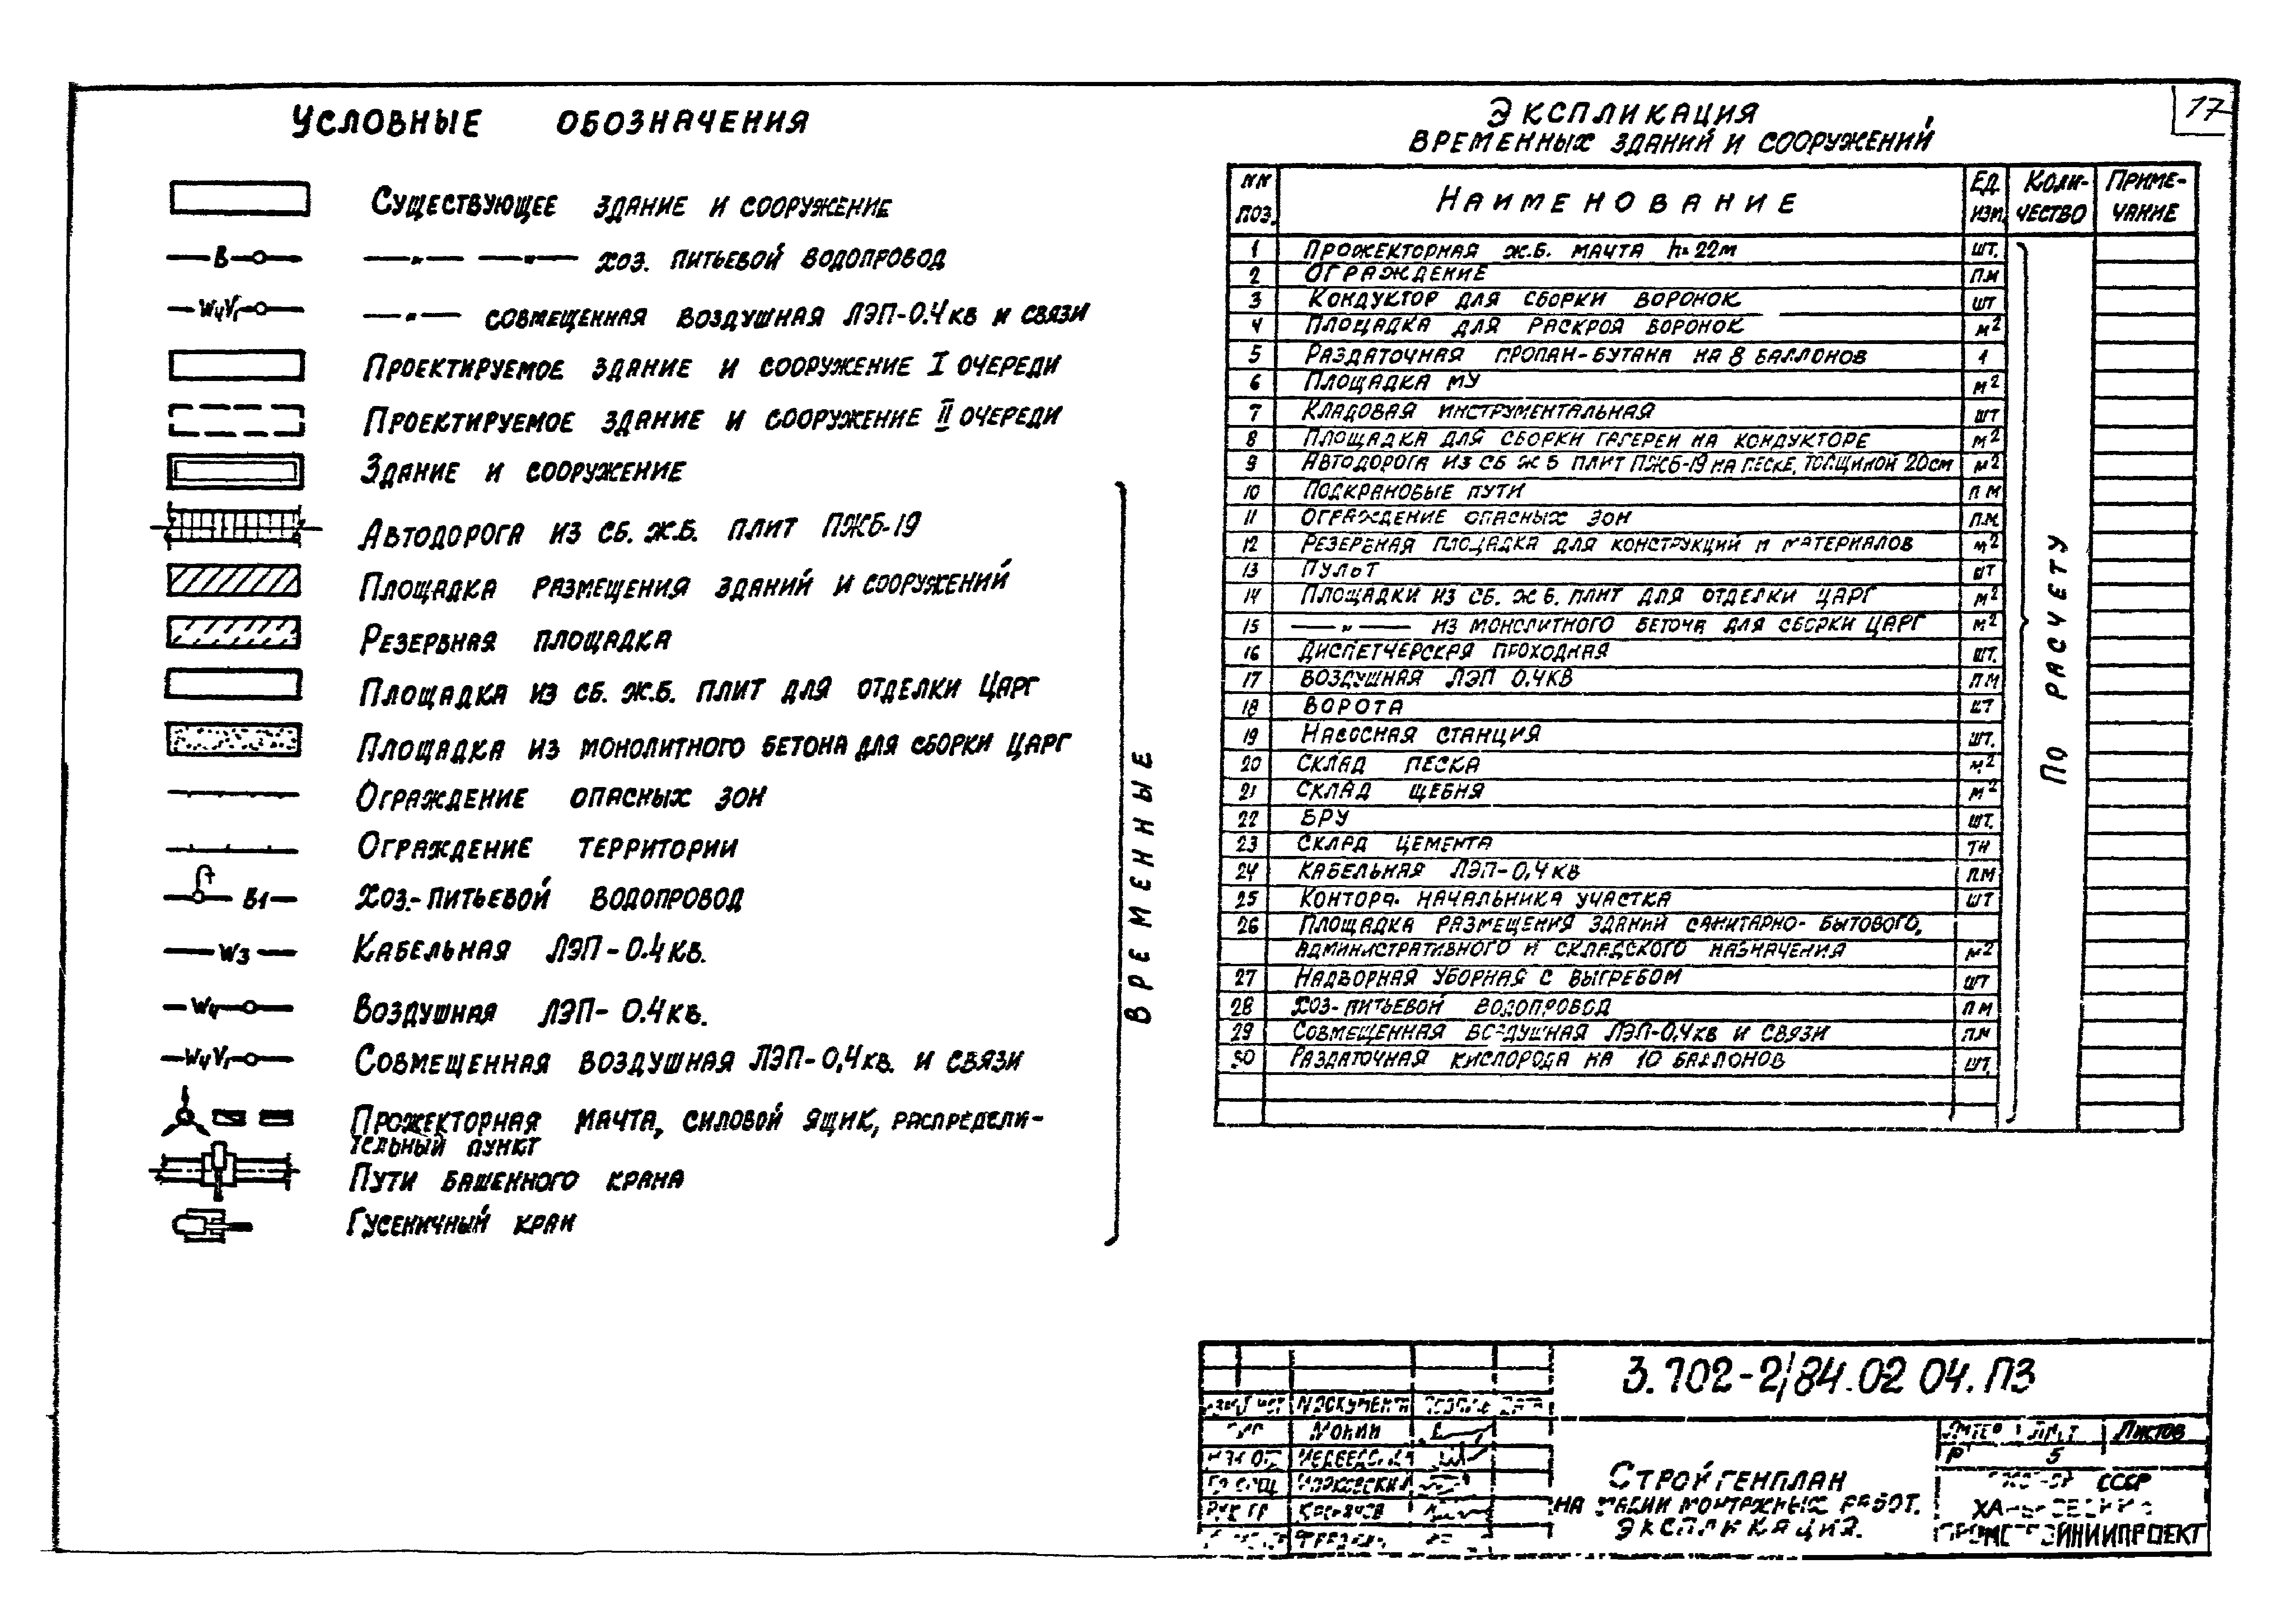 17
Условные обозначения
Существующее здание и сооружение
В —"— —"— хоз. питьевой водопровод
W4V1 —"— совмещенная воздушная ЛЭП-0.4кв и связи
Проектируемое здание и сооружение I очереди
Проектируемое здание и сооружение II очереди
Здание и сооружение
Автодорога из сб. ж.б. плит ПЖБ-19
Площадка размещения зданий и сооружений
Резервная площадка
Площадка из сб. ж.б. плит для отделки царг
Площадка из монолитного бетона для сборки царг
Ограждение опасных зон
Ограждение территории
В1 Хоз.-питьевой водопровод
W3 Кабельная ЛЭП-0.4кв.
W4 Воздушная ЛЭП-0.4кв.
W4V1 Совмещенная воздушная ЛЭП-0,4кв. и связи
Прожекторная мачта, силовой ящик, распредели-
тельный пункт
Пути башенного крана
Гусеничный кран
Временные
Экспликация
временных зданий и сооружений
NN поз. Наименование Ед. изм. Коли-чество Приме-чание
1 Прожекторная ж.б. мачта h=22м шт.
2 Ограждение п.м
3 Кондуктор для сборки воронок шт
4 Площадка для раскроя воронок м2
5 Раздаточная пропан-бутана на 8 баллонов 1
6 Площадка МУ м2
7 Кладовая инструментальная шт
8 Площадка для сборки гагереи на кондукторе м2
9 Автодорога из сб ж б плит ПЖБ-19 на песке, толщиной 20см м2
10 Подкрановые пути п м
11 Ограждение опасных зон п.м.
12 Резервная площадка для конструкций и материалов м2
13 Пульт шт
14 Площадки из сб. ж б. плит для отделки царг м2
15 —"— из монолитного бетона для сборки царг м2
16 Диспетчерская проходная шт.
17 Воздушная ЛЭП 0.4кв п м
18 Ворота шт
19 Насосная станция шт.
20 Склад песка м2
21 Склад щебня м2
22 БРУ шт.
23 Склад цемента тн
24 Кабельная ЛЭП-0,4кв п.м
25 Контора начальника участка шт
26 Площадка размещения зданий санитарно-бытового,
административного и складского назначения м2
27 Надворная уборная с выгребом шт
28 Хоз-питьевой водопровод п м
29 Совмещенная воздушная ЛЭП-0,4кв и связи п.м
30 Раздаточная кислорода на 10 баллонов шт.
По расчету
3.702-2/84.02 04.ПЗ
N докумен Дата
Монин
Рук гр
Стройгенплан
на стадии монтажных работ.
Экспликация.
Литер Лист Листов
Р 5
СССР
Харьковский
ПромстройНИИпроект